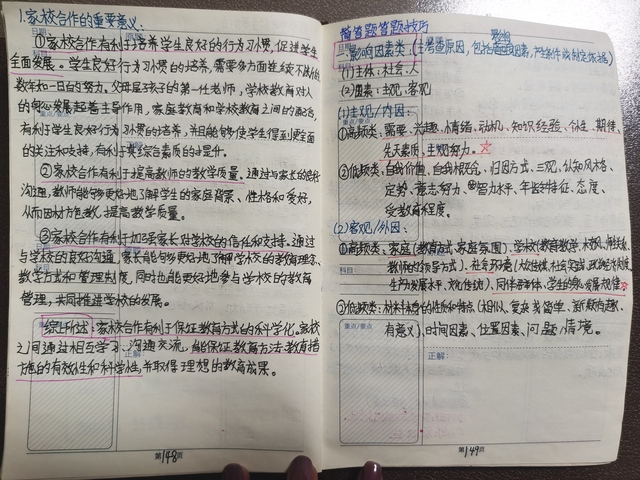 1.家校合作的重要意义:
①家校合作有利于培养学生良好的行为习惯,促进学生
全面发展。学生良好行为习惯的培养,需要多方面连续不断的
数年如一日的努力。父母是孩子的第一任老师,学校教育对人
的身心发展起着主导作用,家庭教育和学校教育之间的配合,
有利于学生良好行为习惯的培养,并且能够使学生得到更全面
的关注和支持,有利于其综合素质的提升。
②家校合作有利于提高教师的教学质量。通过与家长的
沟通,教师能够更好地了解学生的家庭背景、性格和爱好,
从而因材施教,提高教学质量。
③家校合作有利于加强家长对学校的信任和支持。通过
与学校的良好沟通,家长能够更好地了解学校的教育理念、
教学方式和管理制度,同时也能更好地参与学校的教育
管理,共同推进学校的发展。
综上所述:家校合作有利于保证教育方式的科学化。家校
之间通过相互学习、沟通交流,能保证教育方法、教育措
施的有效性和科学性,并取得理想的教育成果。
正解:
第148页
简答题答题技巧
一.影响因素类:(考查原因,包括影响因素,产生条件或制定依据)
(1)主体:社会、人
(2)因素:主观、客观
(1)主观/内因:
①高频类:需要、兴趣、情绪、动机、知识经验、个性、期待、
先天素质、主观努力。☆
②低频类:自我价值、自我概念、归因方式、三观、认知风格、
定势、意志努力、智力水平、年龄特征、态度、
受教育程度。
(2)客观/外因:
①高频类:家庭(教育方式、家庭氛围)、学校(教育教学、校风、
教师的领导方式)、社会环境(大众传媒、社会实践、政治经济制度、
生产力发展水平、文化传统)、同伴群体、学生的身心发展规律☆
科目:
②低频类:材料本身的性质和特点(相似、复杂或简单、新颖有趣、
有意义)、时间因素、位置因素、问题情境。
重点/要点
正解:
第149页